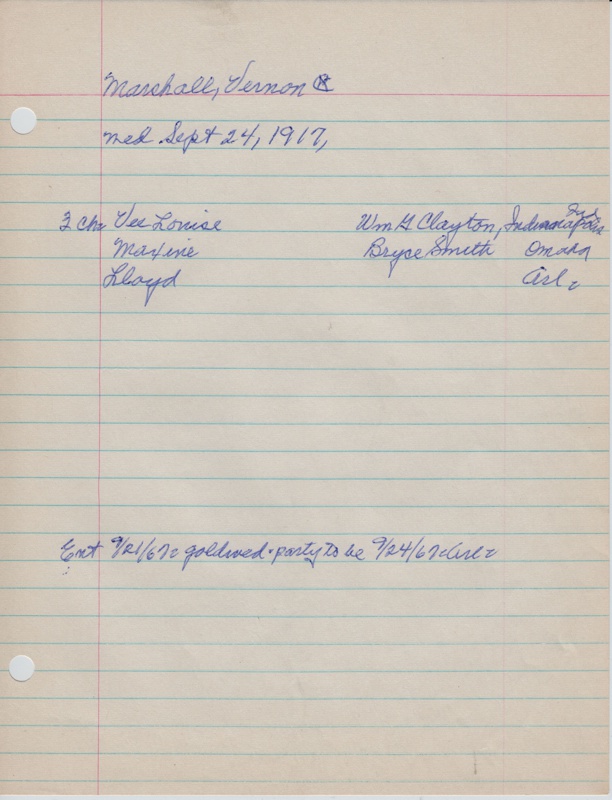 Marshall, Vernon
med Sept 24, 1917,
3 ch: Vee Louise Wm G Clayton, Indianapolis Ind
Maxine Bryce Smith Omaha
Lloyd Arl.
Ent 9/21/67: goldwed. party to be 9/24/67: Arl: